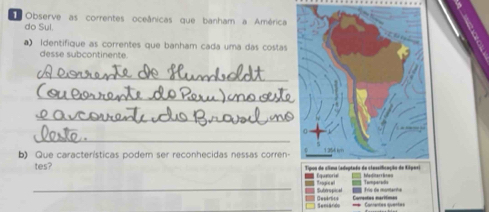 1 Observe as correntes oceânicas que banham a América
do Sul.
a) Identifique as correntes que banham cada uma das costas
desse subcontinente.
A corrente de Humboldt
(ou corrente do Peru) no oeste
e a corrente do Brasil no
leste.
b) Que características podem ser reconhecidas nessas corren-
tes?
1 354 km
Tipos de clima (adaptado da classificação de Köppen)
Equatorial
Tropical
Subtropical
Desértico
Semiárido
Mediterrâneo
Temperado
Frio de montanha
Correntes marítimas
Correntes quentes